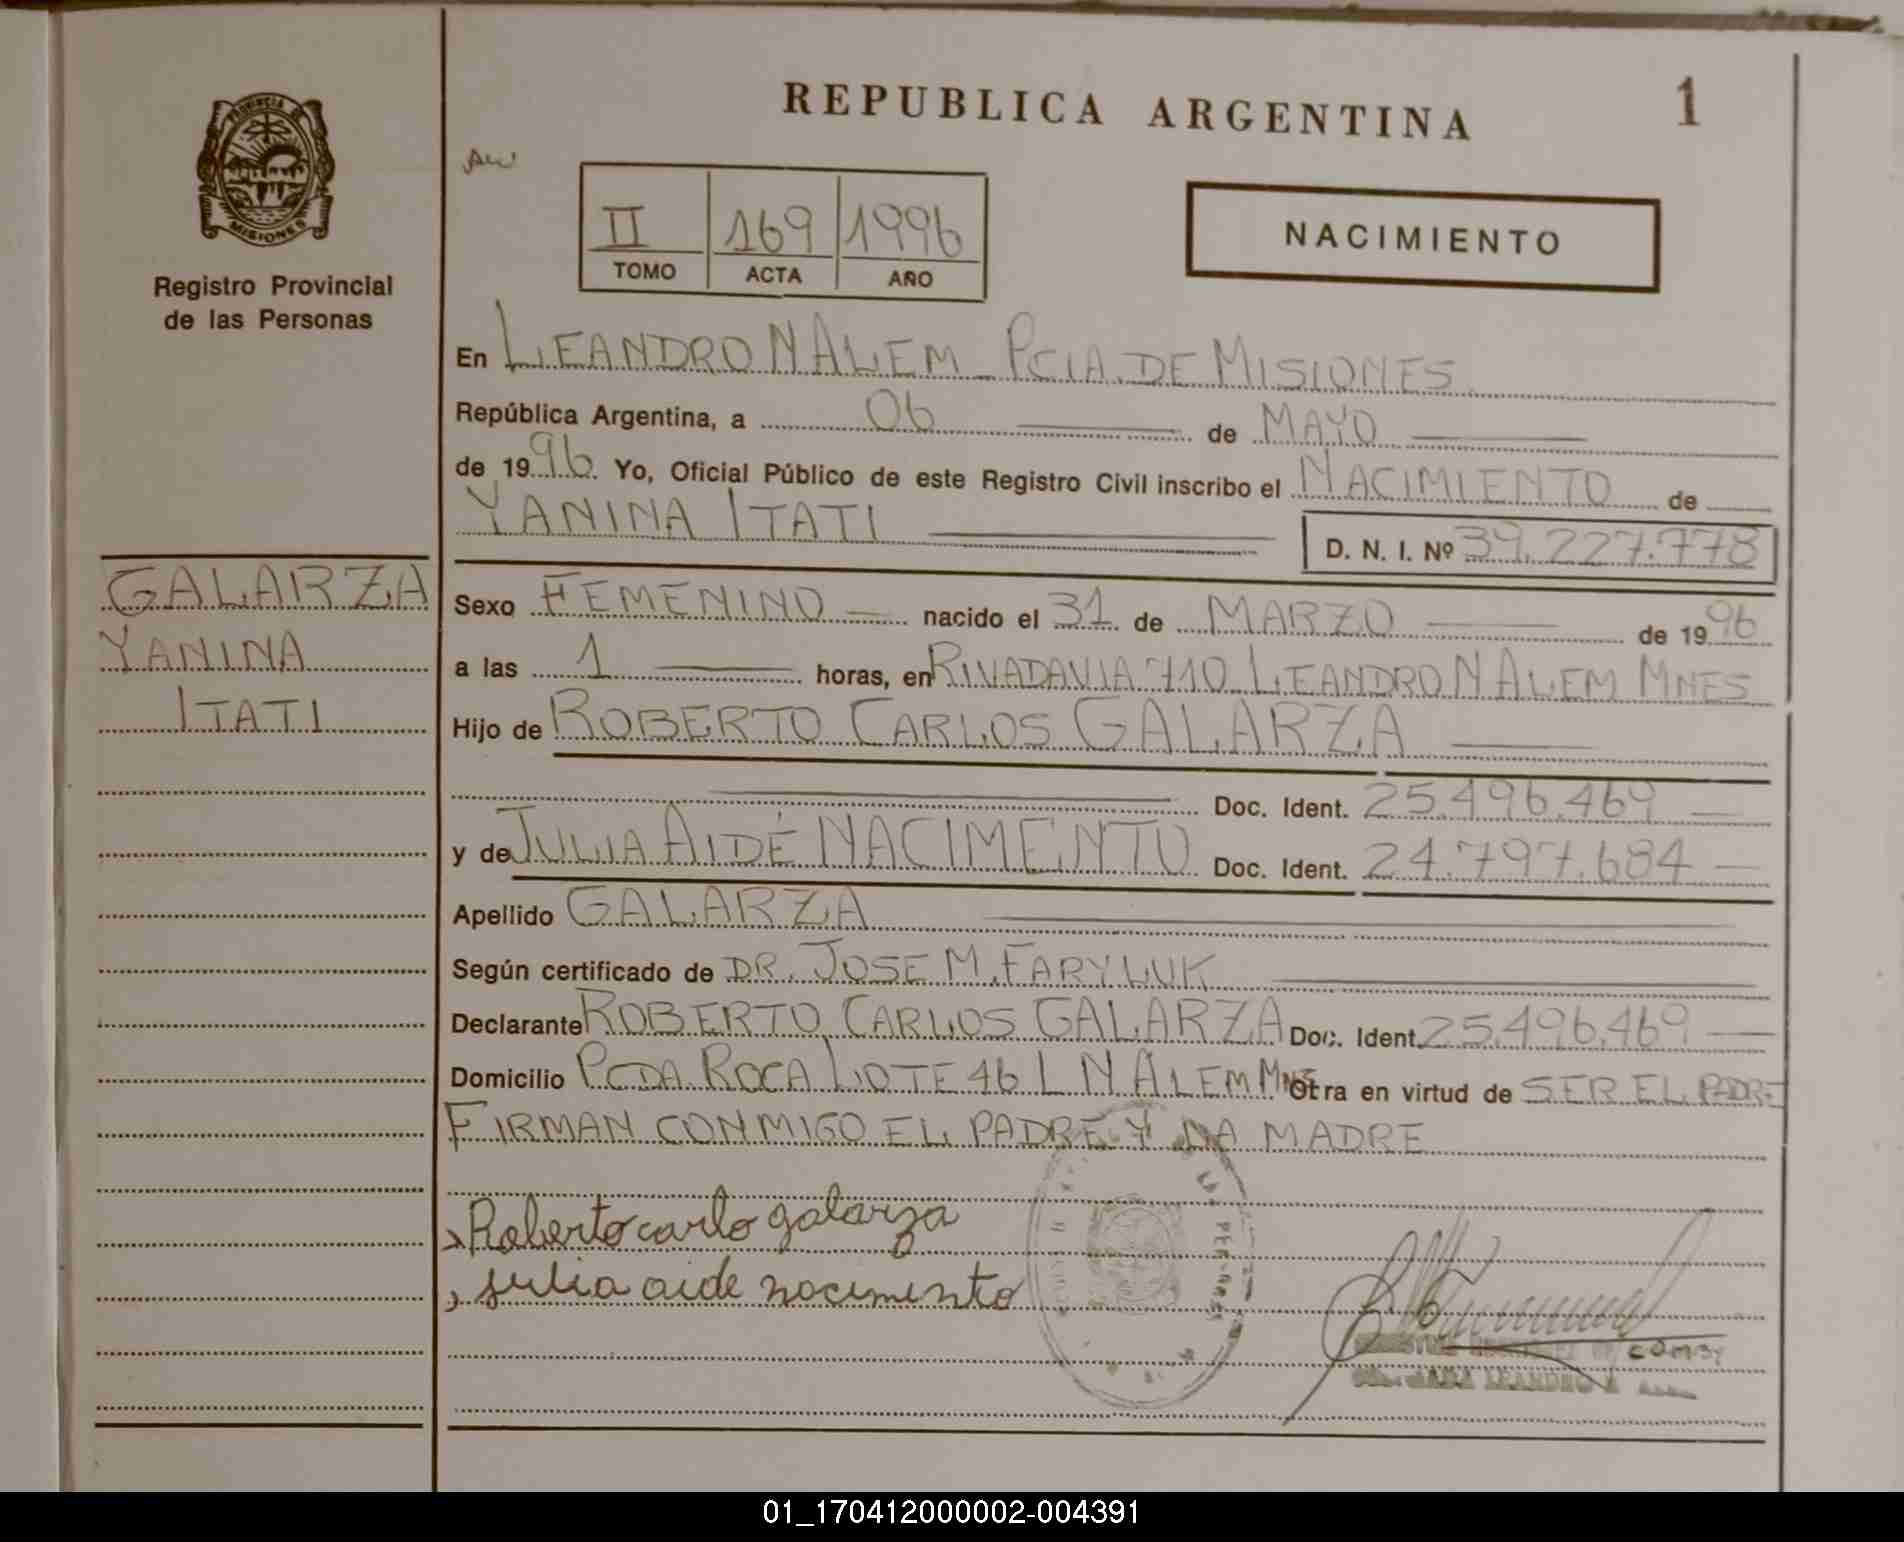 REPUBLICA ARGENTINA
1
PROVINCIA DE
MISIONES
Registro Provincial
de las Personas
II 169 1996
TOMO ACTA AÑO
NACIMIENTO
En LEANDRO N ALEM - PCIA. DE MISIONES
República Argentina, a 06 de MAYO
de 1996. Yo, Oficial Público de este Registro Civil inscribo el NACIMIENTO de
YANINA ITATI D. N. I. Nº 39.227.778
GALARZA
YANINA
ITATI
Sexo FEMENINO nacido el 31 de MARZO de 1996
a las 1 horas, en RIVADAVIA 710 LEANDRO N ALEM MNES
Hijo de ROBERTO CARLOS GALARZA
Doc. Ident. 25.496.469
y de JULIA AIDÉ NACIMENTO Doc. Ident. 24.797.684
Apellido GALARZA
Según certificado de DR. JOSE M. FARYLUK
Declarante ROBERTO CARLOS GALARZA Doc. Ident. 25.496.469
Domicilio PCDA ROCA LOTE 46 L N ALEM MNES Otra en virtud de SER EL PADRE
FIRMAN CONMIGO EL PADRE Y LA MADRE
Roberto carlo galarza
julia aide nacimento
01_170412000002-004391